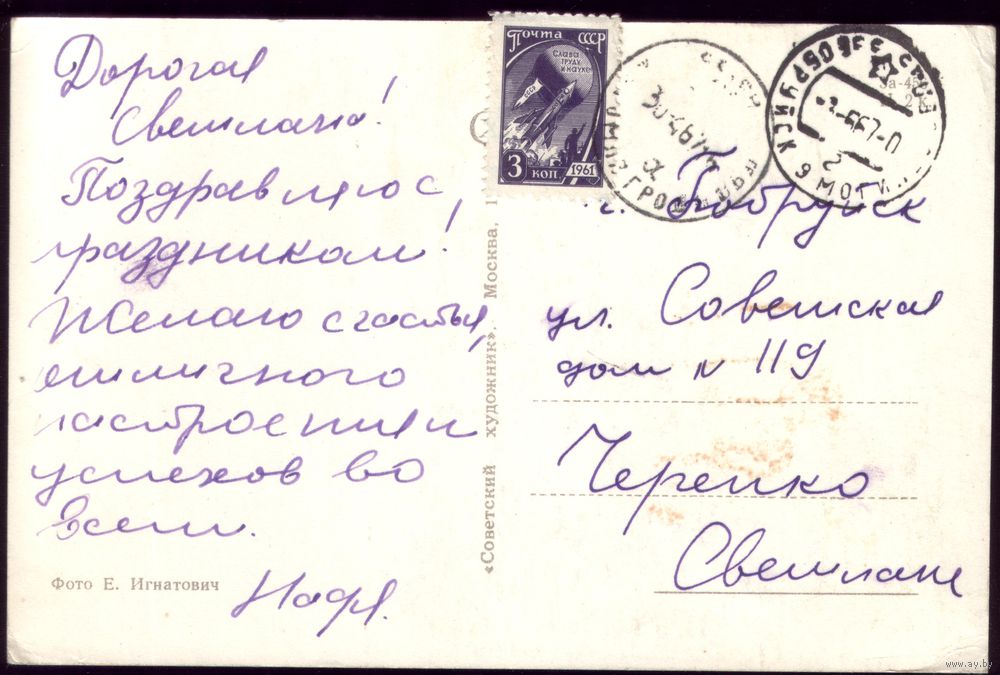 Дорогая
Светлана!
Поздравляю с
праздником!
Желаю счастья,
отличного
настроения и
успехов во
всем.
Надя.
Фото Е. Игнатович
«Советский художник». Москва.
Почта СССР
Слава
труду
и науке
3 коп 1961
БОБРУЙСК
г. Бобруйск
ул. Советская
дом N 119
Черепко
Светлане
www.ay.by